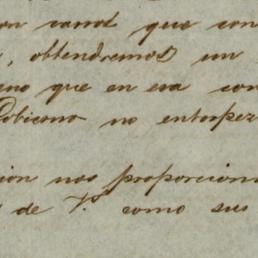 on carral que con
, obtendremos un
eno que en esa con
Gobierno no entorpez
ion nos proporciona
de V. como sus